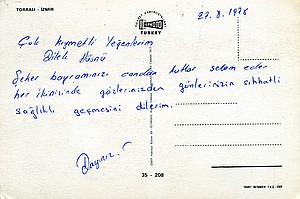 TORBALI - İZMİR
TURKEY
27.8.1976
Çok kıymetli Yeğenlerim
Dilek Hüsnü
Şeker bayramınızı candan kutlar selam eder
her ikinizinde gözlerinizden günlerinizin sıhhatli
sağlıklı geçmesini dilerim.
Dayınız.
35 - 208